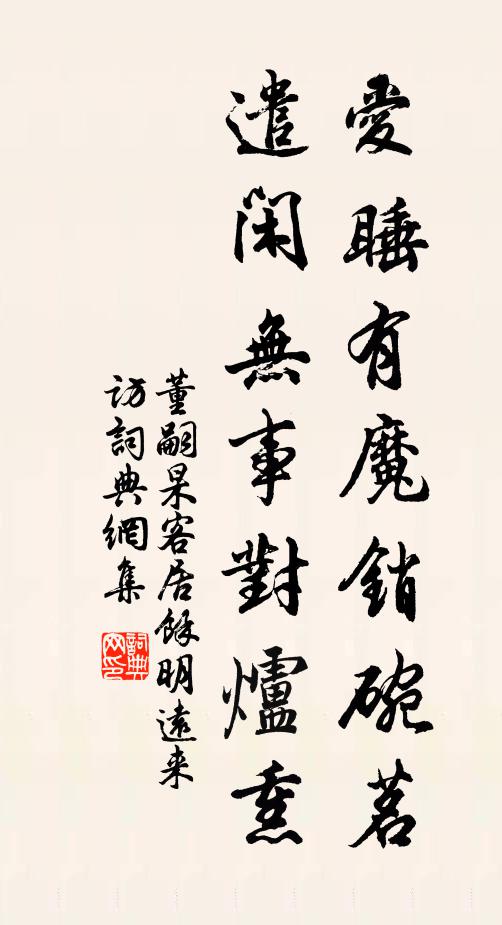 愛睡有魔銷碗茗
遣閑無事對爐熏
董嗣杲客居餘明遠来
訪詞典網集
詞典
网印